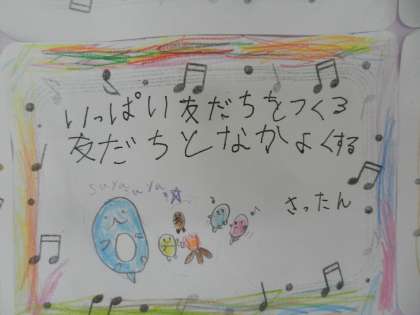 いっぱい友だちをつくる
友だちとなかよくする
suyasuya
さったん